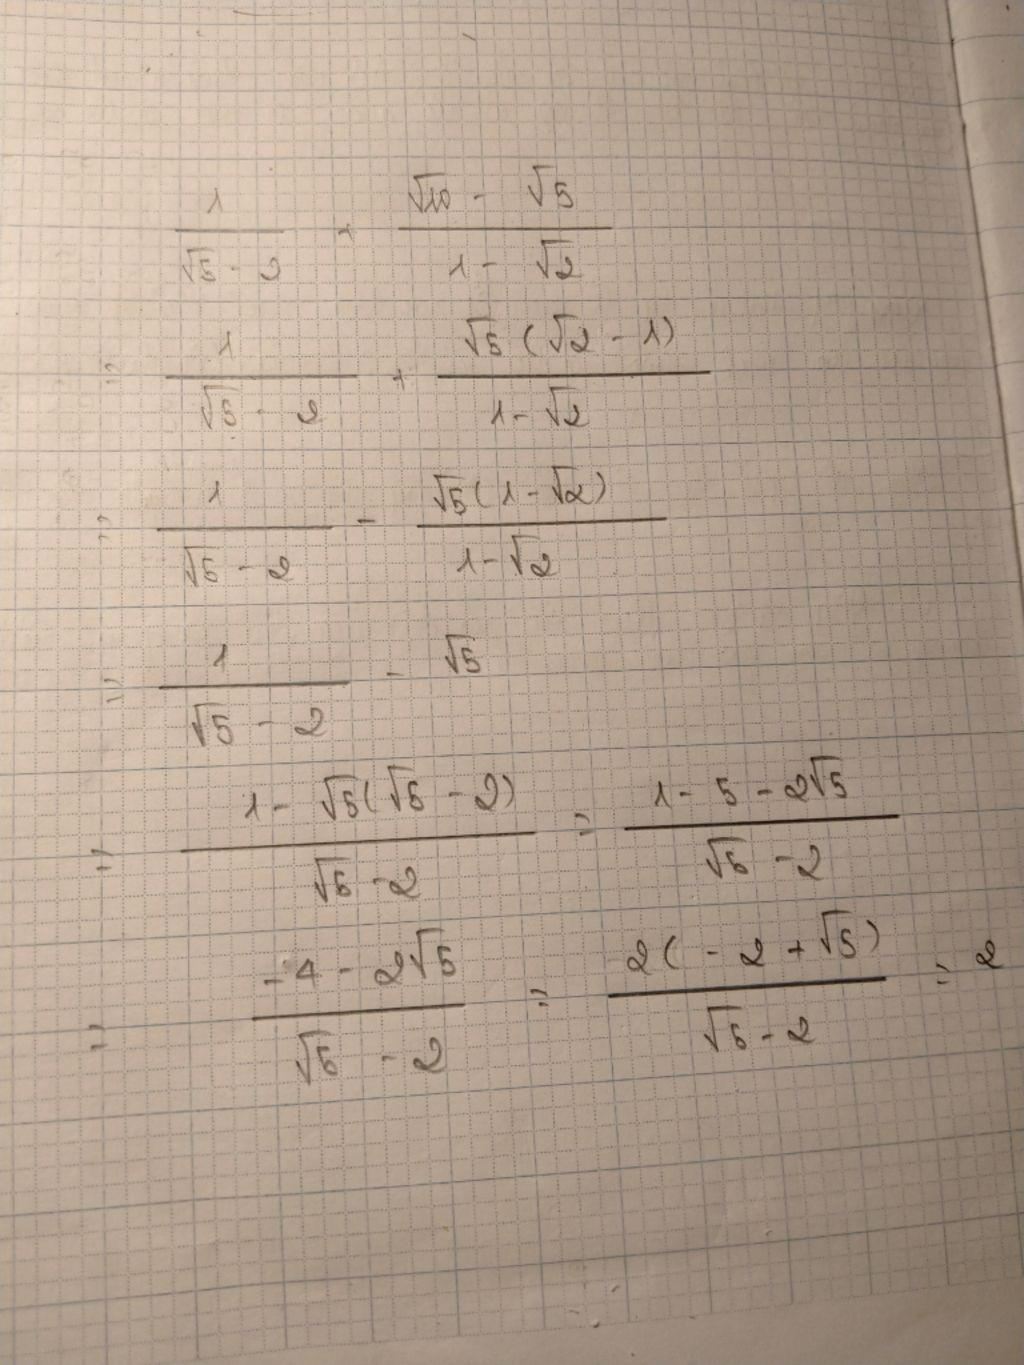 1/(√5 - 2) + (√10 - √5)/(1 - √2)
= 1/(√5 - 2) + √5(√2 - 1)/(1 - √2)
= 1/(√5 - 2) - √5(1 - √2)/(1 - √2)
= 1/(√5 - 2) - √5
= (1 - √5(√5 - 2))/(√5 - 2) = (1 - 5 - 2√5)/(√5 - 2)
= (-4 - 2√5)/(√5 - 2) = 2(-2 + √5)/(√5 - 2) = 2